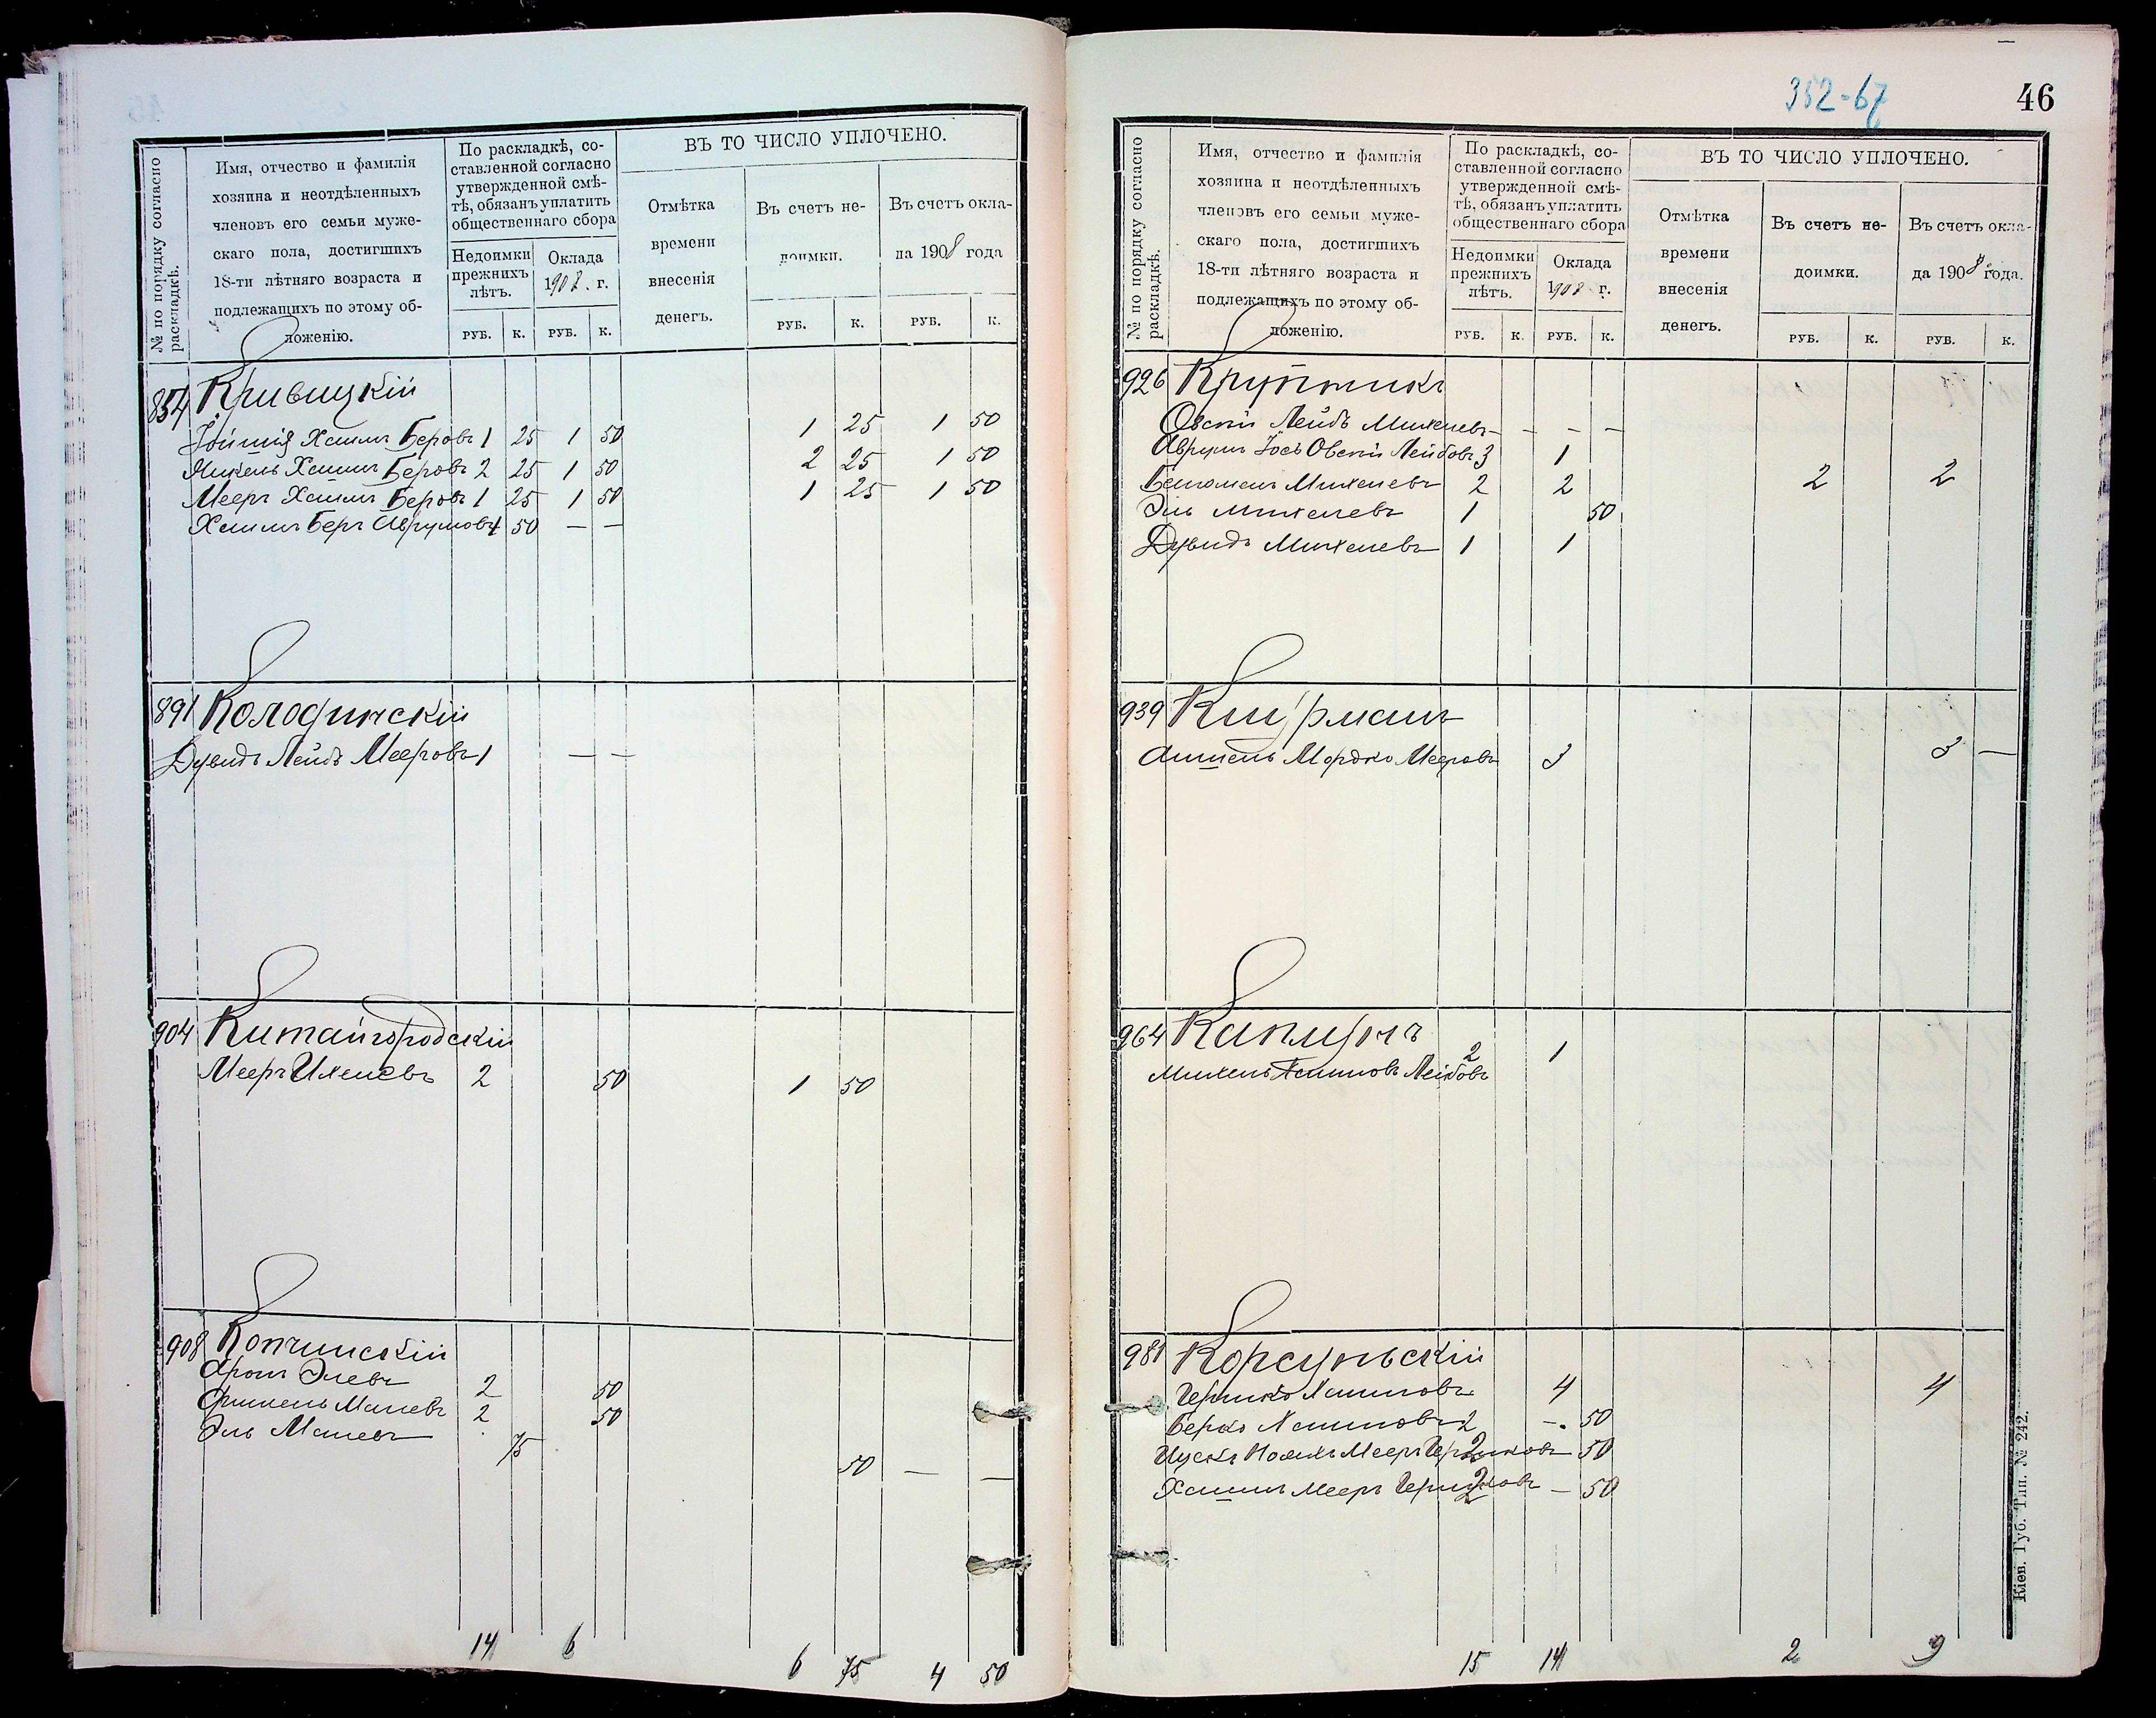 № по порядку согласно раскладкѣ.
Имя, отчество и фамилія
хозяина и неотдѣленныхъ
членовъ его семьи муже-
скаго пола, достигшихъ
18-ти лѣтняго возраста и
подлежащихъ по этому об-
ложенію.
По раскладкѣ, со-
ставленной согласно
утвержденной смѣ-
тѣ, обязанъ уплатить
общественнаго сбора
Недоимки
прежнихъ
лѣтъ.
Оклада
1908 . г.
РУБ. К. РУБ. К.
ВЪ ТО ЧИСЛО УПЛОЧЕНО.
Отмѣтка
времени
внесенія
денегъ.
Въ счетъ не-
доимки.
Въ счетъ окла-
да 1908 года
РУБ. К. РУБ. К.
854 Кривицкій
Хаимъ Беровъ 1 25 1 50 1 25 1 50
Михель Хаимъ Беровъ 2 25 1 50 2 25 1 50
Мееръ Хаимъ Беровъ 1 25 1 50 1 25 1 50
Хаимъ Беръ Аврумовъ 4 50 — —
891 Колодинскій
Дувидъ Лейбъ Мееровъ 1 — —
904 Китайгородскій
Мееръ Ихелевъ 2 50 1 50
908 Копчинскій
Аронъ Элевъ 2 50
Фишель Малевъ 2 50
Эль Малевъ 75
50 — —
14 6 6 75 4 50
352-67
46
№ по порядку согласно раскладкѣ.
Имя, отчество и фамилія
хозяина и неотдѣленныхъ
членовъ его семьи муже-
скаго пола, достигшихъ
18-ти лѣтняго возраста и
подлежащихъ по этому об-
ложенію.
По раскладкѣ, со-
ставленной согласно
утвержденной смѣ-
тѣ, обязанъ уплатить
общественнаго сбора
Недоимки
прежнихъ
лѣтъ.
Оклада
1908 г.
РУБ. К. РУБ. К.
ВЪ ТО ЧИСЛО УПЛОЧЕНО.
Отмѣтка
времени
внесенія
денегъ.
Въ счетъ не-
доимки.
Въ счетъ окла-
да 1908 года.
РУБ. К. РУБ. К.
926 Крупникъ
Овсій Лейбъ Михелевъ — — — —
Аврумъ Іосъ Овсій Лейбовъ 3 1
Михелевъ 2 2 2 2
Эль Михелевъ 1 50
Дувидъ Михелевъ 1 1
939
Аншель Мордко Мееровъ 3 3 —
964 Каплунъ
Михель Хаимовъ Лейбовъ 2 1
981 Корсуньскій
Гершко Хаимовъ 4 4
Берко Хаимовъ 2 — 50
Мееръ Гершковъ 2 50
Хаимъ Мееръ Гершковъ 2 — 50
15 14 2 9
Кіев. Губ. Тип. № 242.